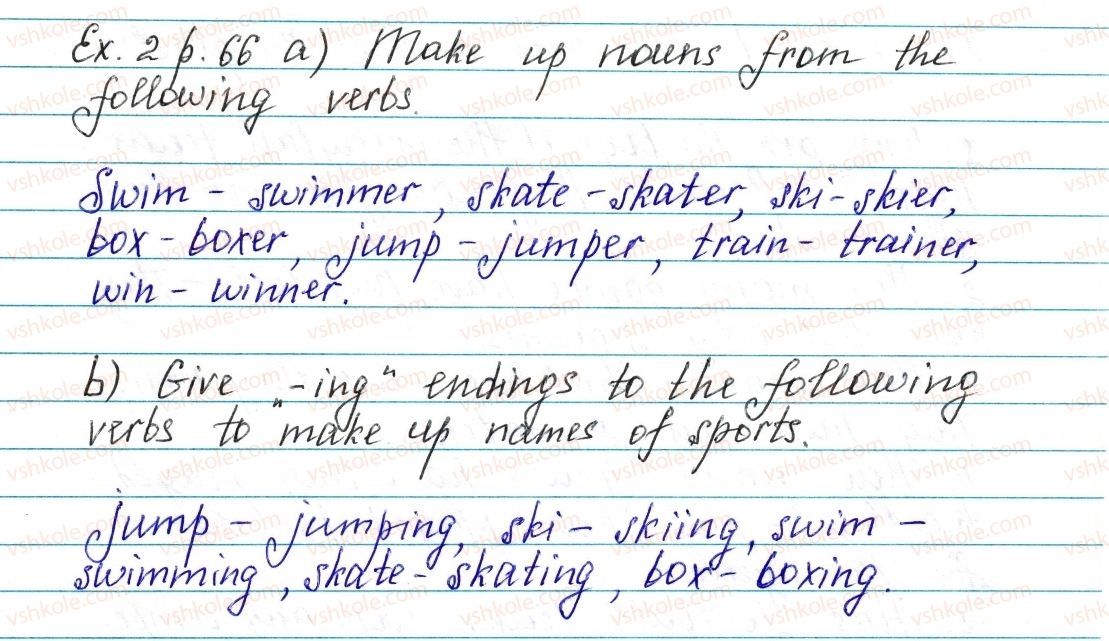 Ex. 2 p. 66 a) Make up nouns from the
following verbs.
Swim - swimmer, skate - skater, ski - skier,
box - boxer, jump - jumper, train - trainer,
win - winner.
b) Give „-ing" endings to the following
verbs to make up names of sports.
jump - jumping, ski - skiing, swim -
swimming, skate - skating, box - boxing.